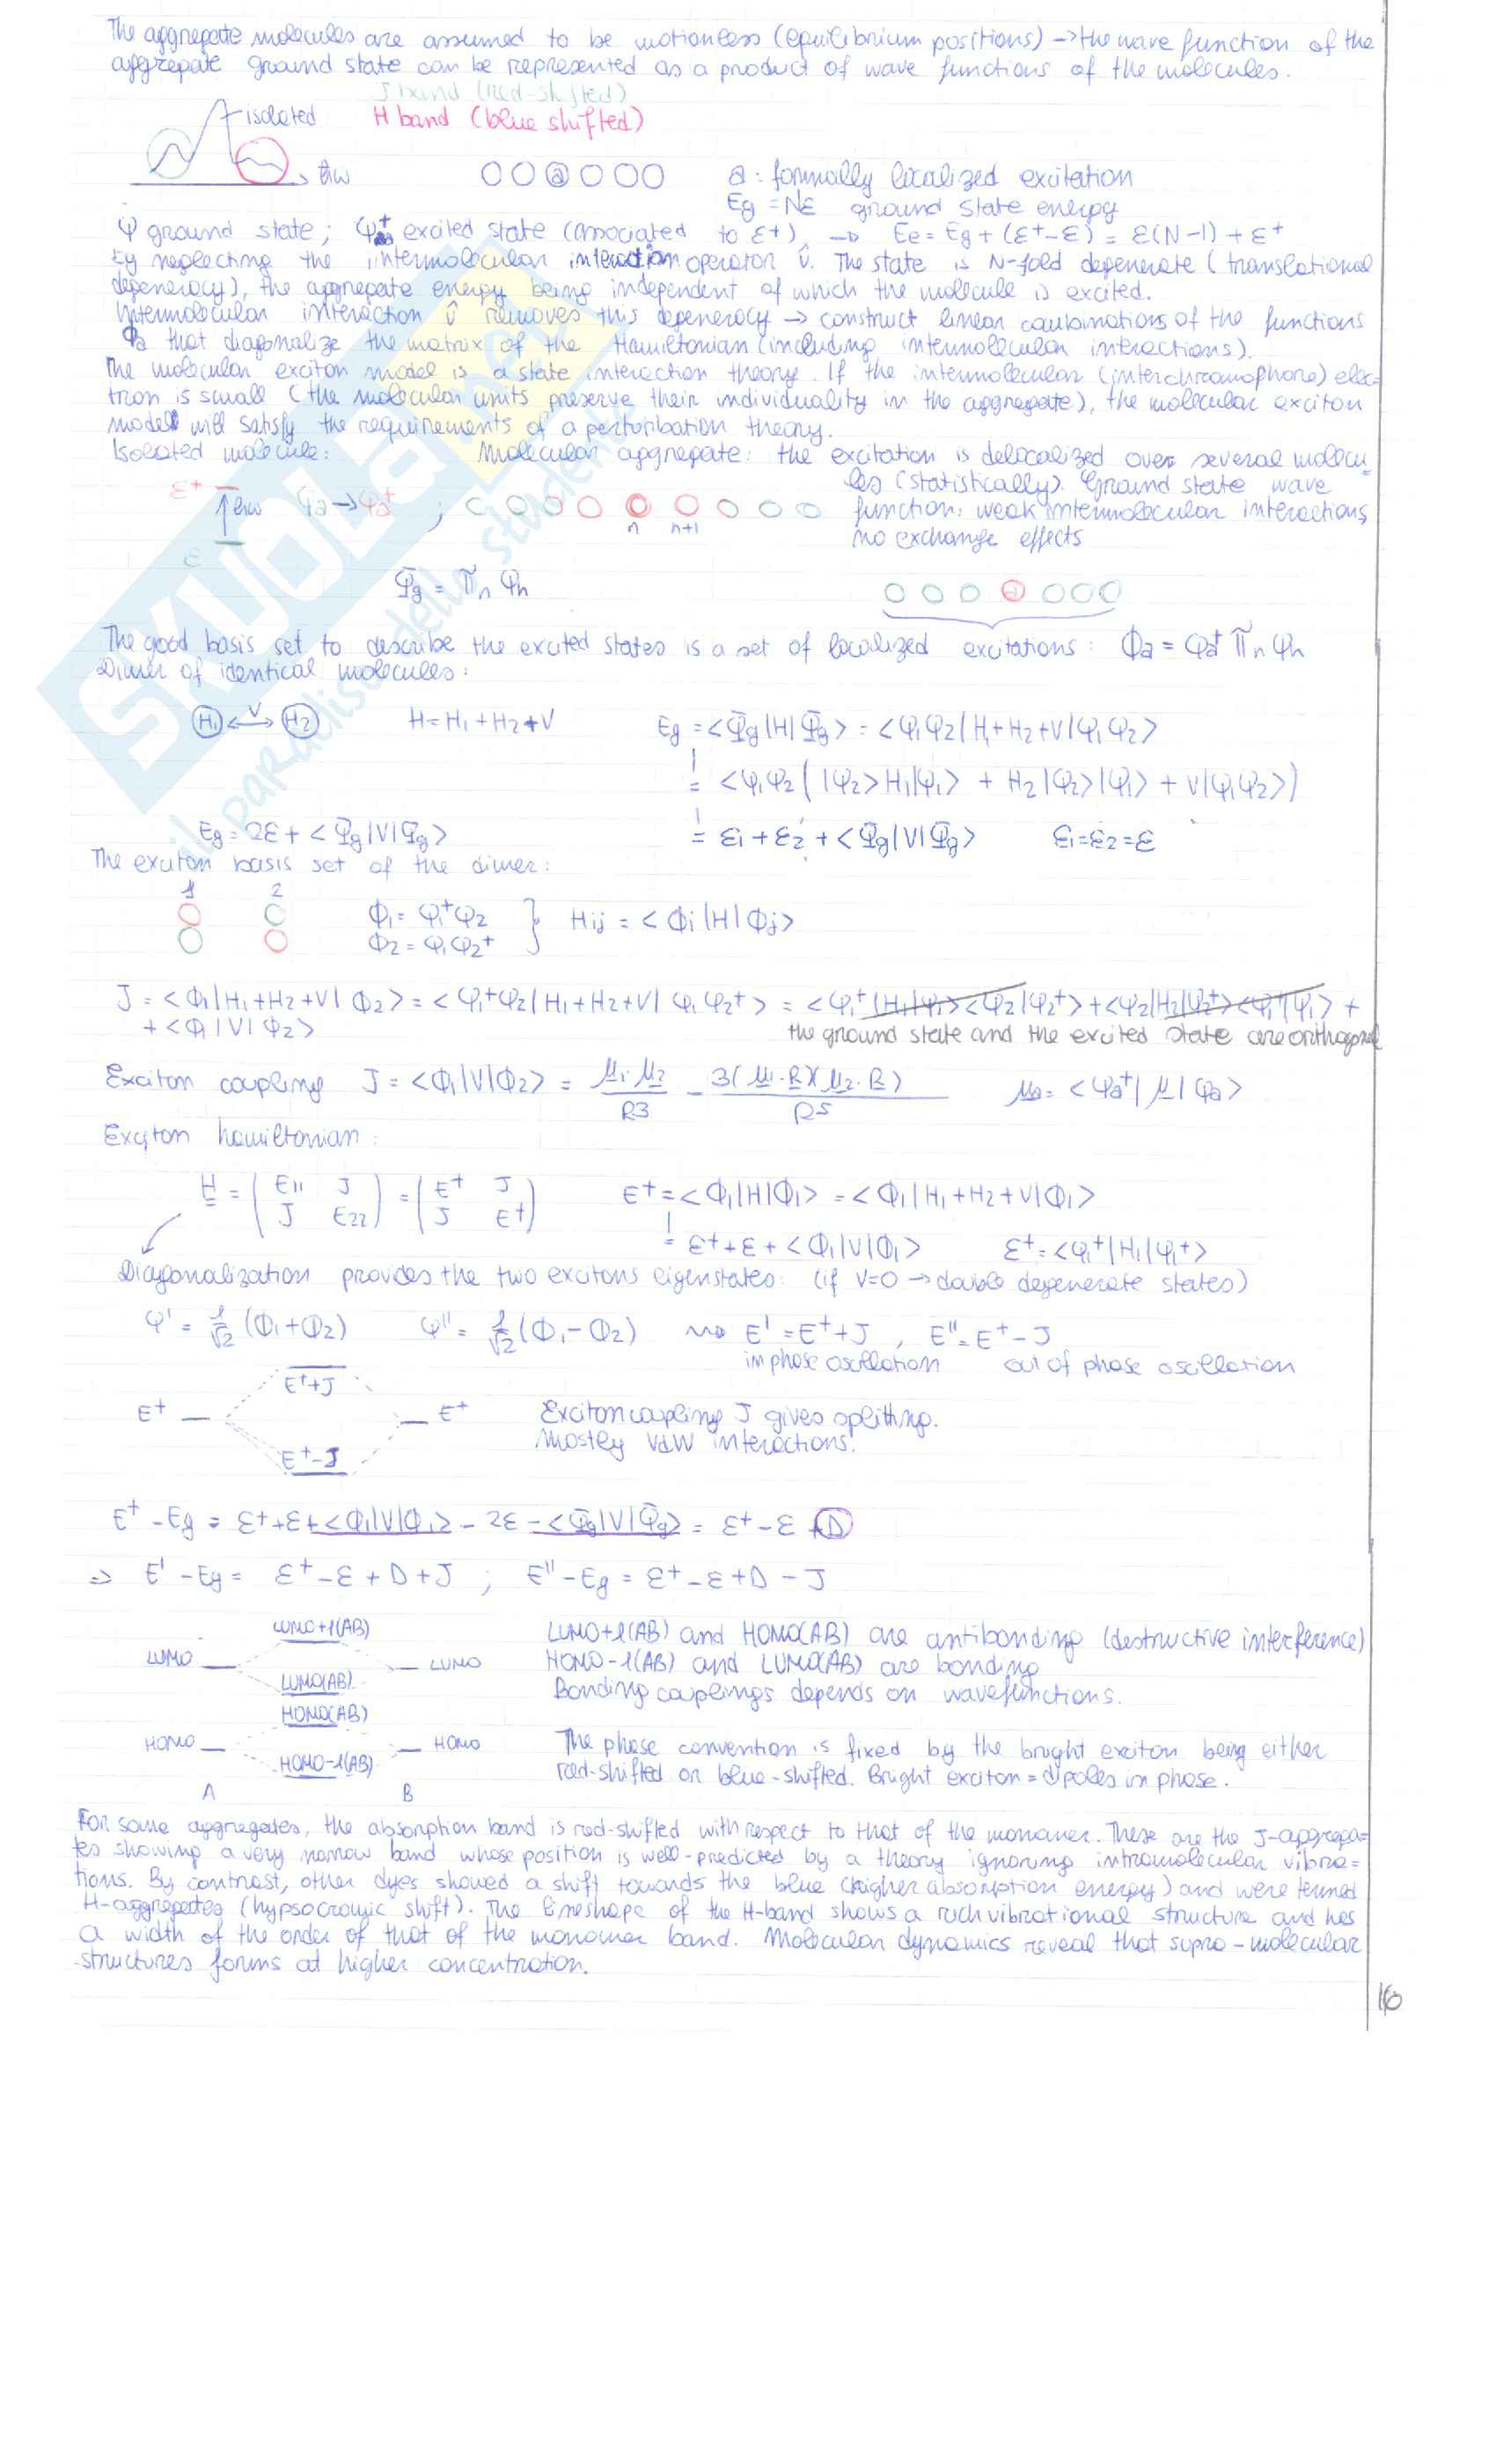 The aggregate molecules are assumed to be motionless (equilibrium positions) → the wave function of the
aggregate ground state can be represented as a product of wave functions of the molecules.
J band (red-shifted)
isolated H band (blue shifted)
ħω
a a: formally localized excitation
Eg = Nε ground state energy
φ ground state; φa+ excited state (associated to ε+) → Ee = Eg + (ε+-ε) = ε(N-1) + ε+
by neglecting the intermolecular interaction operator v̂. The state is N-fold degenerate (translational
degeneracy), the aggregate energy being independent of which the molecule is excited.
Intermolecular interaction v̂ removes this degeneracy → construct linear combinations of the functions
Φa that diagonalize the matrix of the Hamiltonian (including intermolecular interactions).
The molecular exciton model is a state interaction theory. If the intermolecular (interchromophore) elec-
tron is small (the molecular units preserve their individuality in the aggregate), the molecular exciton
model will satisfy the requirements of a perturbation theory.
Isolated molecule: Molecular aggregate: the excitation is delocalized over several molecu-
les (statistically). Ground state wave
ε+ ħω φa → φa+ ; function: weak intermolecular interactions,
n n+1
no exchange effects
ε
Φg = Πn φn
a
The good basis set to describe the excited states is a set of localized excitations: Φa = φa+ Πn φn
Dimer of identical molecules:
H1 V H2 H = H1 + H2 + V Eg = <Φg|H|Φg> = <φ1φ2|H1+H2+V|φ1φ2>
= <φ1φ2(|φ2>H1|φ1> + H2|φ2>|φ1> + V|φ1φ2>)
Eg = 2ε + <Φg|V|Φg> = ε1 + ε2 + <Φg|V|Φg> ε1=ε2=ε
The exciton basis set of the dimer:
1 2
Φ1 = φ1+φ2
Φ2 = φ1φ2+ } Hij = <Φi|H|Φj>
J = <Φ1|H1+H2+V|Φ2> = <φ1+φ2|H1+H2+V|φ1φ2+> = <φ1+|H1|φ1><φ2|φ2+> + <φ2|H2|φ2+><φ1+|φ1> +
+ <Φ1|V|Φ2> the ground state and the excited state are orthogonal
Exciton coupling J = <Φ1|V|Φ2> = μ1·μ2/R3 - 3(μ1·R)(μ2·R)/R5 μa = <φa+|μ|φa>
Exciton hamiltonian:
H = (E11 J / J E22) = (E+ J / J E+) E+ = <Φ1|H|Φ1> = <Φ1|H1+H2+V|Φ1>
= ε+ + ε + <Φ1|V|Φ1> ε+ = <φ1+|H1|φ1+>
Diagonalization provides the two excitons eigenstates: (if V=0 → double degenerate states)
φ' = 1/√2 (Φ1+Φ2) φ'' = 1/√2 (Φ1-Φ2) → E' = E+ + J , E'' = E+ - J
in phase oscillation out of phase oscillation
E+ + J
E+ E+ Exciton coupling J gives splitting.
Mostly VdW interactions.
E+ - J
E+ - Eg = ε+ + ε + <Φ1|V|Φ1> - 2ε - <Φg|V|Φg> = ε+ - ε + D
⇒ E' - Eg = ε+ - ε + D + J ; E'' - Eg = ε+ - ε + D - J
LUMO+1(AB) LUMO+1(AB) and HOMO(AB) are antibonding (destructive interference)
LUMO LUMO HOMO-1(AB) and LUMO(AB) are bonding
LUMO(AB) Bonding couplings depends on wavefunctions.
HOMO(AB)
HOMO HOMO The phase convention is fixed by the bright exciton being either
HOMO-1(AB) red-shifted or blue-shifted. Bright exciton = dipoles in phase.
A B
For some aggregates, the absorption band is red-shifted with respect to that of the monomer. These are the J-aggrega=
tes showing a very narrow band whose position is well-predicted by a theory ignoring intramolecular vibra=
tions. By contrast, other dyes showed a shift towards the blue (higher absorption energy) and were termed
H-aggregates (hypsocromic shift). The lineshape of the H-band shows a rich vibrational structure and has
a width of the order of that of the monomer band. Molecular dynamics reveal that supra-molecular
structures forms at higher concentration.
16
SKUOLa.net
il paradiso dello studente